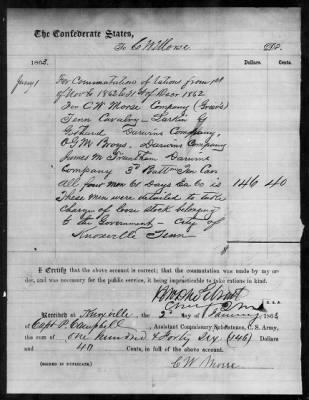 The Confederate States,
To C W Morse Dr.
1863. Dollars. Cents.
Jany 1 For Commutation of rations from 1st
of Nov to 1862 to 31st of Decr 1862
For C.W. Morse Company
Tenn Cavalry - Larkin G
Gothard Darwins Company,
O G M Broys. Darwins Company
James M Trentham Darwins
Company 3d Batt Ten Cav
All four men 61 Days Ea 60 c is 146 40
These men were detailed to take
Charge of loose stock belonging
to the Government - City of
Knoxville Tenn
$
I Certify that the above account is correct; that the commutation was made by my or-
der, and was necessary for the public service, it being impracticable to take rations in kind.
C.S.A.
Received at Knoxville the 2d day of January 1863
of Capt P. Campbell, Assistant Commissary Subsistence, C. S. Army,
the sum of one hundred & forty six (146) Dollars
and 40 Cents, in full of the above account.
[SIGNED IN DUPLICATE.] C W Morse